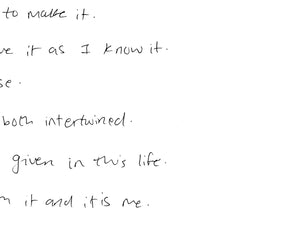 to make it.
it as I know it.
both intertwined.
given in this life.
it and it is me.